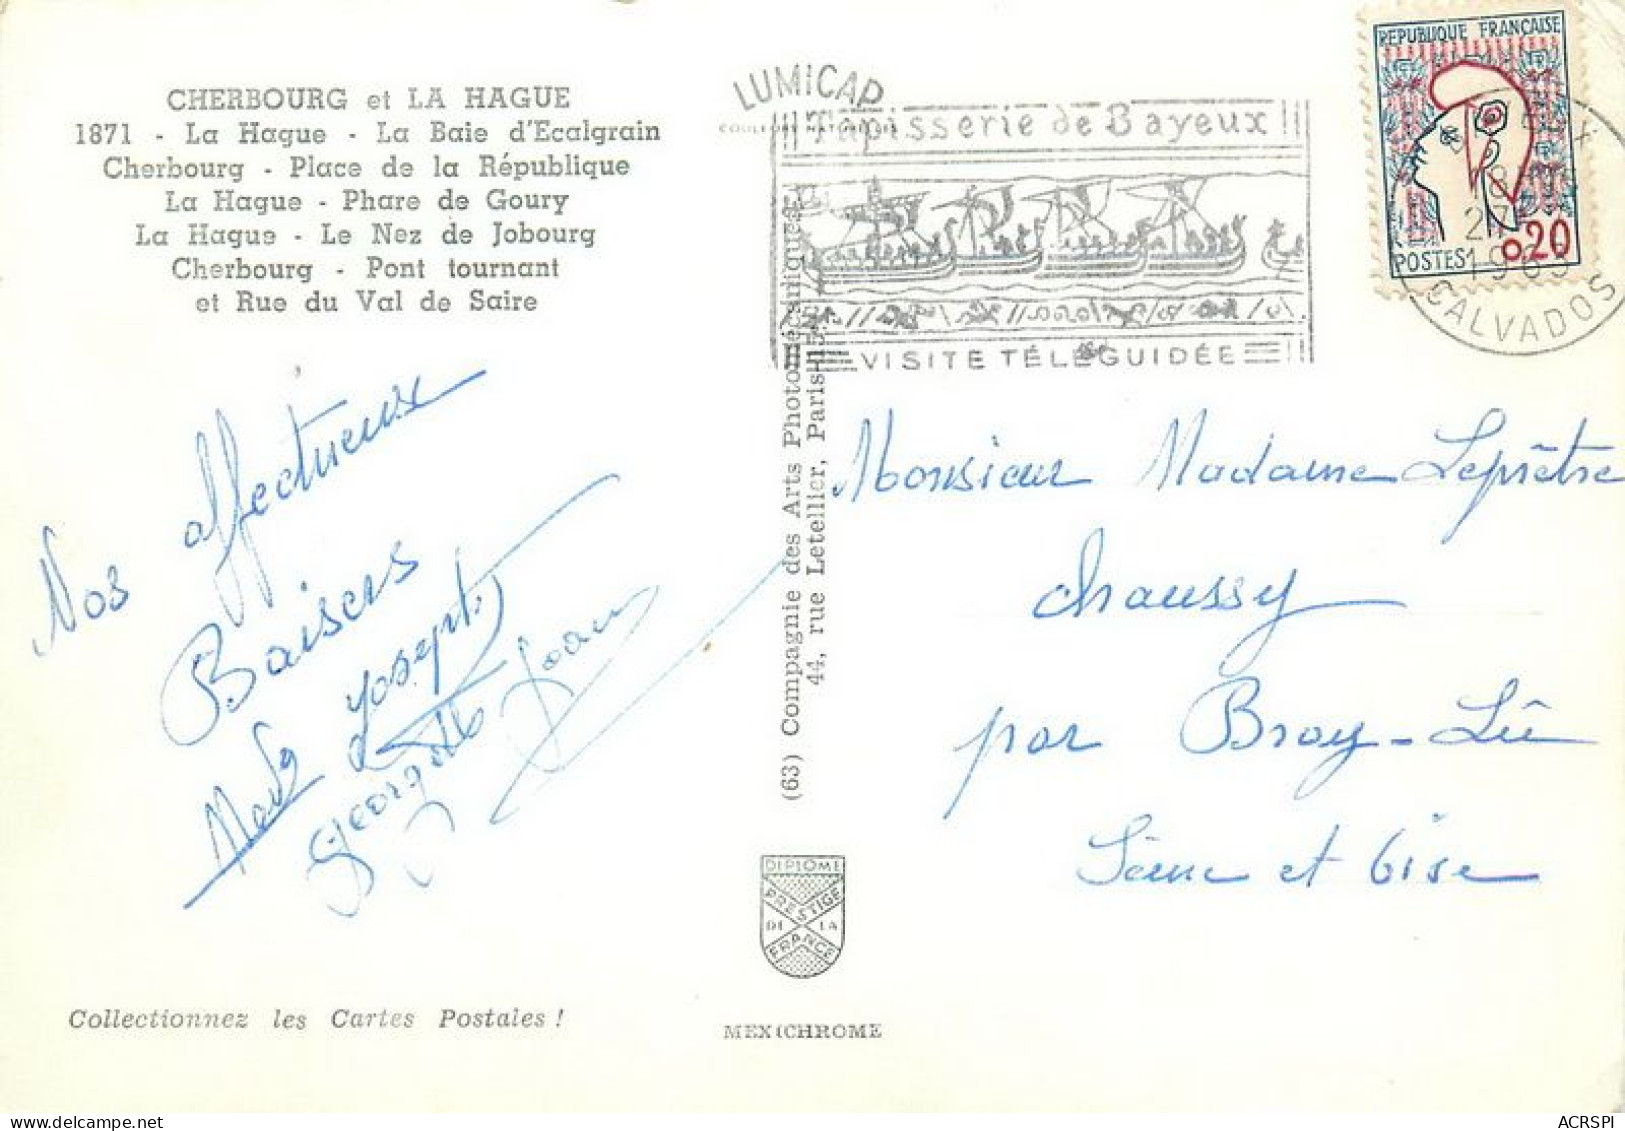 CHERBOURG et LA HAGUE
1871 - La Hague - La Baie d'Ecalgrain
Cherbourg - Place de la République
La Hague - Phare de Goury
La Hague - Le Nez de Jobourg
Cherbourg - Pont tournant
et Rue du Val de Saire
Nos affectueux
Baisers
Joseph
Georgette Jean
Collectionnez les Cartes Postales !
LUMICAP
COULEURS NATURELLES
Tapisserie de Bayeux
VISITE TÉLÉGUIDÉE
REPUBLIQUE FRANÇAISE
POSTES 0,20
18H
27
CALVADOS
(63) Compagnie des Arts Photomécaniques
44, rue Letellier, Paris-15
DIPLOME
PRESTIGE
DE LA
FRANCE
MEXICHROME
Monsieur Madame Leprêtre
Chaussy
par Bray-Lû
Seine et Oise
ACRSPI